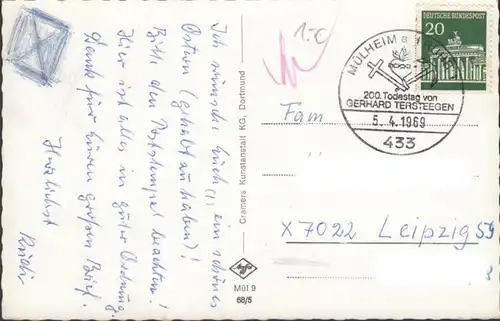 Ich wünsche Euch (!) ein schönes
Ostern (gehabt zu haben)!
Bitte den Poststempel beachten!
Hier ist alles in guter Ordnung.
Dank für Euren großen Brief.
Herzlichst
Cramers Kunstanstalt KG, Dortmund
Agfa
Mül 9
68/5
1.-€
DEUTSCHE BUNDESPOST
20
MÜLHEIM
200. Todestag von
GERHARD TERSTEEGEN
5.4.1969
433
Fam
X 7022 Leipzig 59